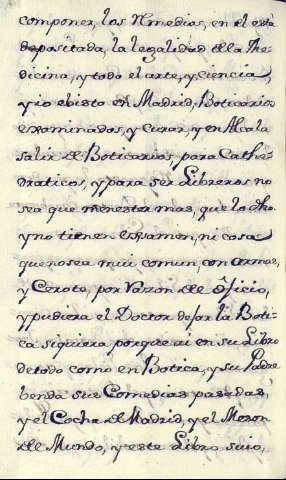 componer, los Rmedios, en el está
depositada, la legalidad dela Me-
dicina, y todo el arte, y ciencia,
y io e bisto en Madrid, Boticarios
examinados, y Curar, y en Alcala
salir de Boticarios, para Cathe-
draticos, y para ser Libreros no
sea que menester mas, que lo dho
y no tienen exsamen, ni cosa
que no sea mui comun, con armas,
y Cerote, por razon de oficio,
y pudiera el Doctor dejar la Boti-
ca siquiera porque ai en su Libro
de todo como en Botica, y su Padre
benda sus Comedias pasadas,
y el Cocha de Madrid, y el Meson
de Mundo, y este Libro suio,